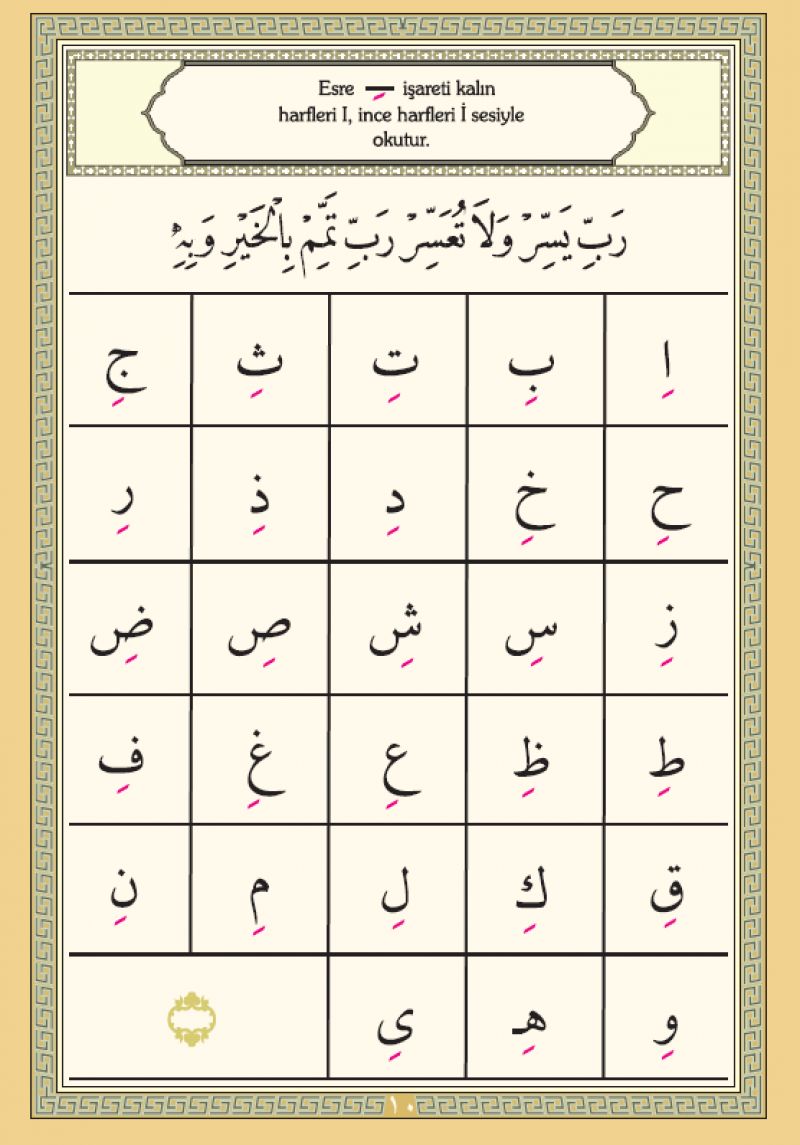 Esre ـِ işareti kalın
harfleri I, ince harfleri İ sesiyle
okutur.
رَبِّ يَسِّرْ وَلَا تُعَسِّرْ رَبِّ تَمِّمْ بِالْخَيْرِ وَبِهِ
اِ بِ تِ ثِ جِ
حِ خِ دِ ذِ رِ
زِ سِ شِ صِ ضِ
طِ ظِ عِ غِ فِ
قِ كِ لِ مِ نِ
وِ هِـ ىِ
١٠